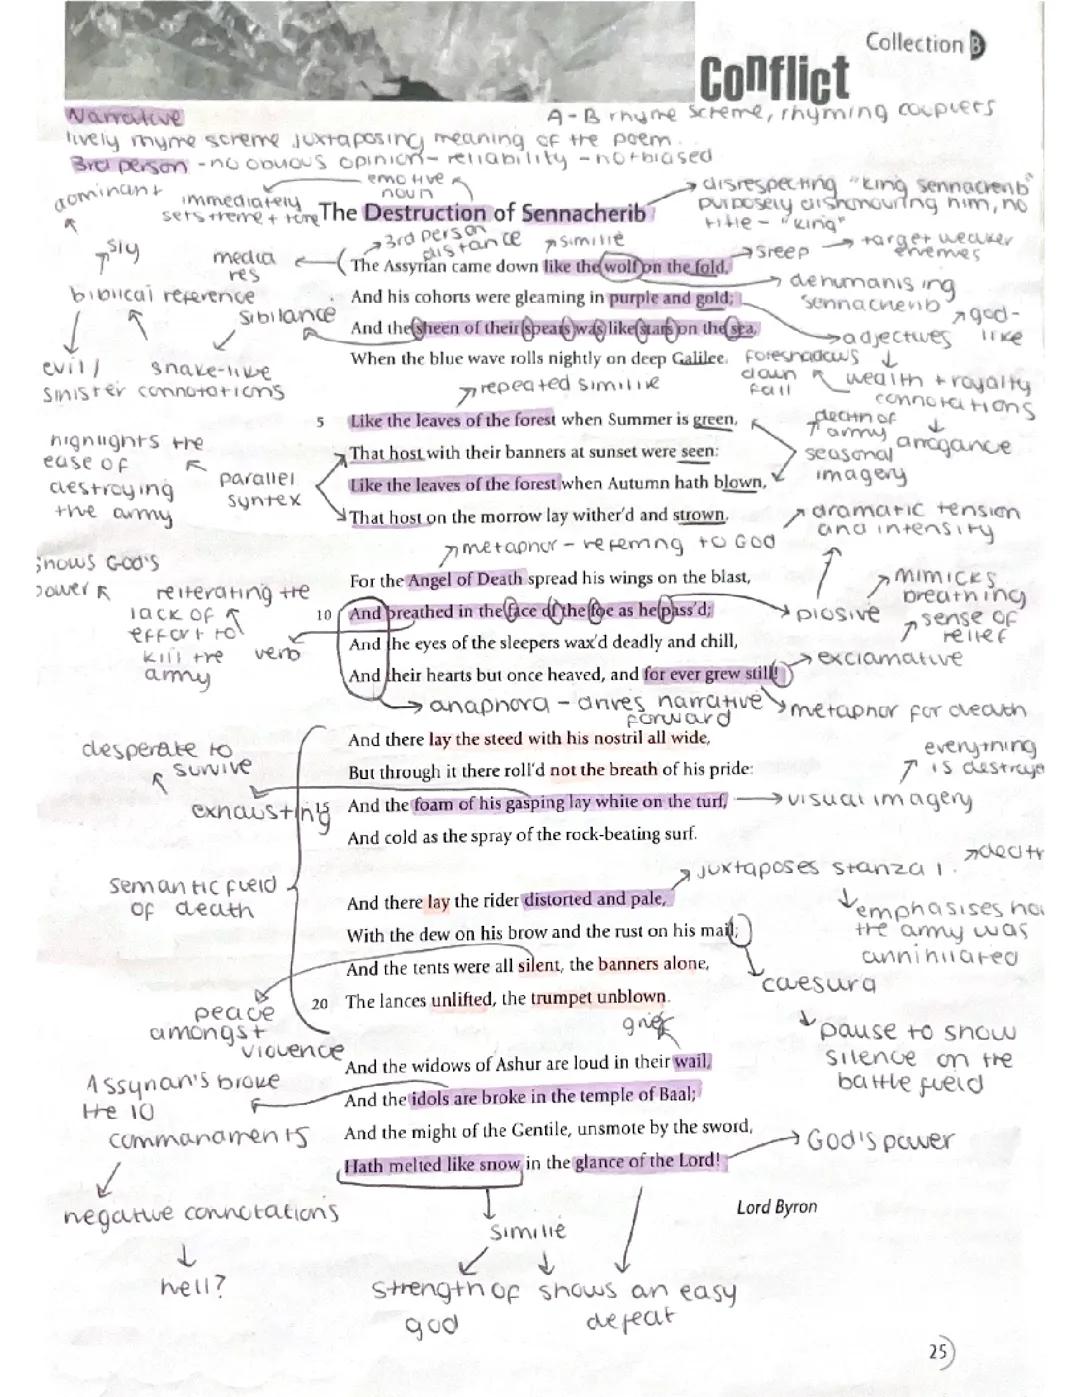 Collection B
Conflict
Narrative
A-B rhyme scheme, rhyming couplets
lively rhyme screme juxtaposing meaning of the poem.
3rd person - no obvious opinion - reliability - not biased
emotive
noun
dominant
immediately
sets theme + tone
The Destruction of Sennacherib
disrespecting "king sennacherib"
purposely dishonouring him, no
title - "king"
3rd person
distance
similie
sly
media
res
sreep
target weaker
enemies
The Assyrian came down like the wolf on the fold,
dehumanising
sennacherib
biblical reference
And his cohorts were gleaming in purple and gold;
god-
like
sibilance
And the sheen of their spears was like stars on the sea,
adjectives
evil /
sinister connotations
snake-like
When the blue wave rolls nightly on deep Galilee.
foreshadows
down
fall
wealth + royalty
connotations
repeated similie
5 Like the leaves of the forest when Summer is green,
death of
army
arrogance
seasonal
imagery
highlights the
ease of
destroying
the army
That host with their banners at sunset were seen:
parallel
syntex
Like the leaves of the forest when Autumn hath blown,
That host on the morrow lay wither'd and strown.
dramatic tension
and intensity
metaphor - referring to God
shows God's
power
For the Angel of Death spread his wings on the blast,
mimicks
breathing
reiterating the
lack of
effort to
kill the
army
10 And breathed in the face of the foe as he pass'd;
plosive
sense of
relief
verb
And the eyes of the sleepers wax'd deadly and chill,
exclamative
And their hearts but once heaved, and for ever grew still!
anaphora - drives narrative
forward
metaphor for death
And there lay the steed with his nostril all wide,
desperate to
survive
everything
is destroye
But through it there roll'd not the breath of his pride:
exhausting
15 And the foam of his gasping lay white on the turf,
visual imagery
And cold as the spray of the rock-beating surf.
juxtaposes stanza 1.
death
semantic field
of death
And there lay the rider distorted and pale,
emphasises how
the army was
annihilated
With the dew on his brow and the rust on his mail;
caesura
And the tents were all silent, the banners alone,
20 The lances unlifted, the trumpet unblown.
peace
amongst
violence
grief
pause to show
silence on the
battle field
And the widows of Ashur are loud in their wail,
Assyrian's broke
the 10
commandments
And the idols are broke in the temple of Baal;
And the might of the Gentile, unsmote by the sword,
God's power
Hath melted like snow in the glance of the Lord!
Lord Byron
negative connotations
similie
hell?
strength of
god
shows an easy
defeat
25